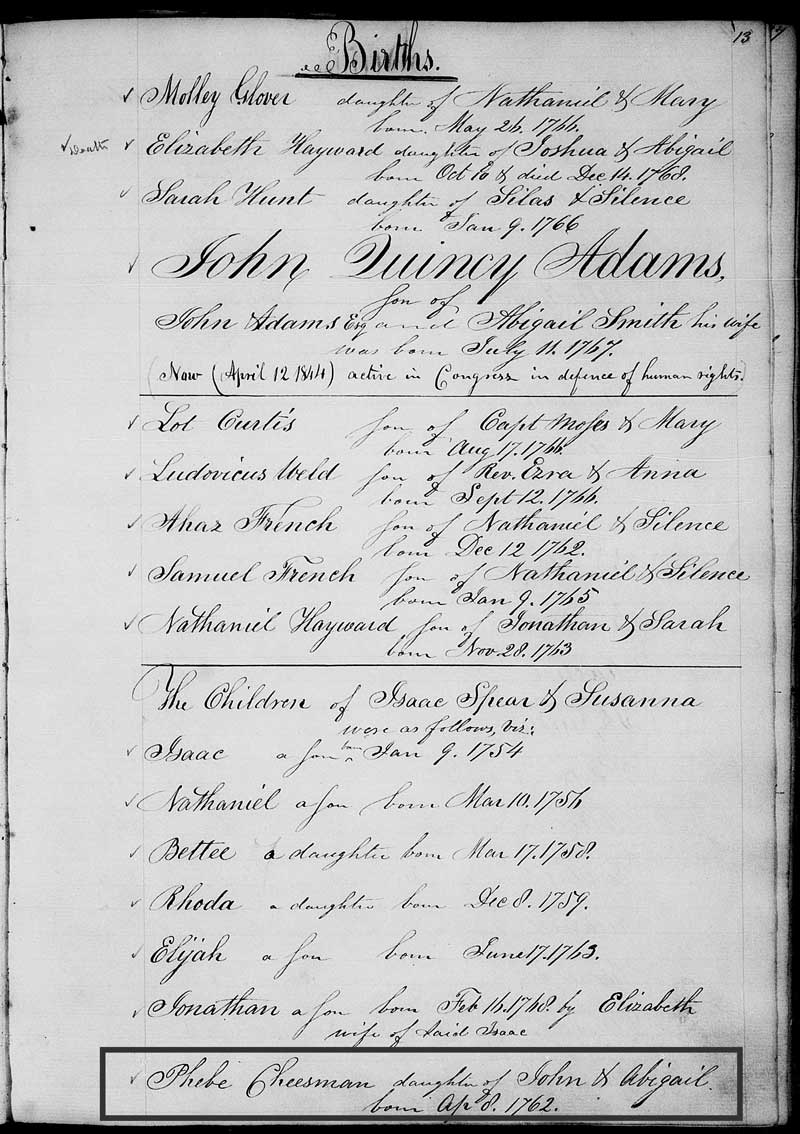 13
Births.
Molley Glover daughter of Nathaniel & Mary
born May 26. 1766.
Death
Elizabeth Hayward daughter of Joshua & Abigail
born Oct 10 & died Dec 14. 1768.
Sarah Hunt daughter of Silas & Silence
born Jan 9. 1766
John Quincy Adams,
son of
John Adams Esq and Abigail Smith his wife
was born July 11. 1767.
(Now (April 12 1844) active in Congress in defence of human rights.)
Lot Curtis son of Capt Moses & Mary
born Aug 17. 1766.
Ludovicus Weld son of Rev. Ezra & Anna
born Sept 12. 1766.
Ahaz French son of Nathaniel & Silence
born Dec 12 1762.
Samuel French son of Nathaniel & Silence
born Jan 9. 1765
Nathaniel Hayward son of Jonathan & Sarah
born Nov 28. 1763
The Children of Isaac Spear & Susanna
were as follows, viz:
Isaac a son born Jan 9. 1754
Nathaniel a son born Mar 10. 1756
Bettee a daughter born Mar 17. 1758.
Rhoda a daughter born Dec 8. 1759.
Elijah a son born June 17. 1763.
Jonathan a son born Feb 16. 1768. by Elizabeth
wife of said Isaac
Phebe Cheesman daughter of John & Abigail.
born Ap 8. 1762.